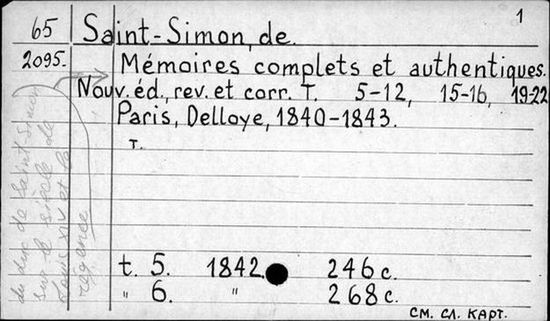 1
65 Saint-Simon, de.
2095. Mémoires complets et authentiques.
Nouv. éd., rev. et corr. T. 5-12, 15-16, 19-22
Paris, Delloye, 1840-1843.
т.
t. 5. 1842. 246 с.
" 6. " 268 с.
см. сл. карт.
du duc de Saint Simon
sur le siècle de
Louis XIV et la
régence